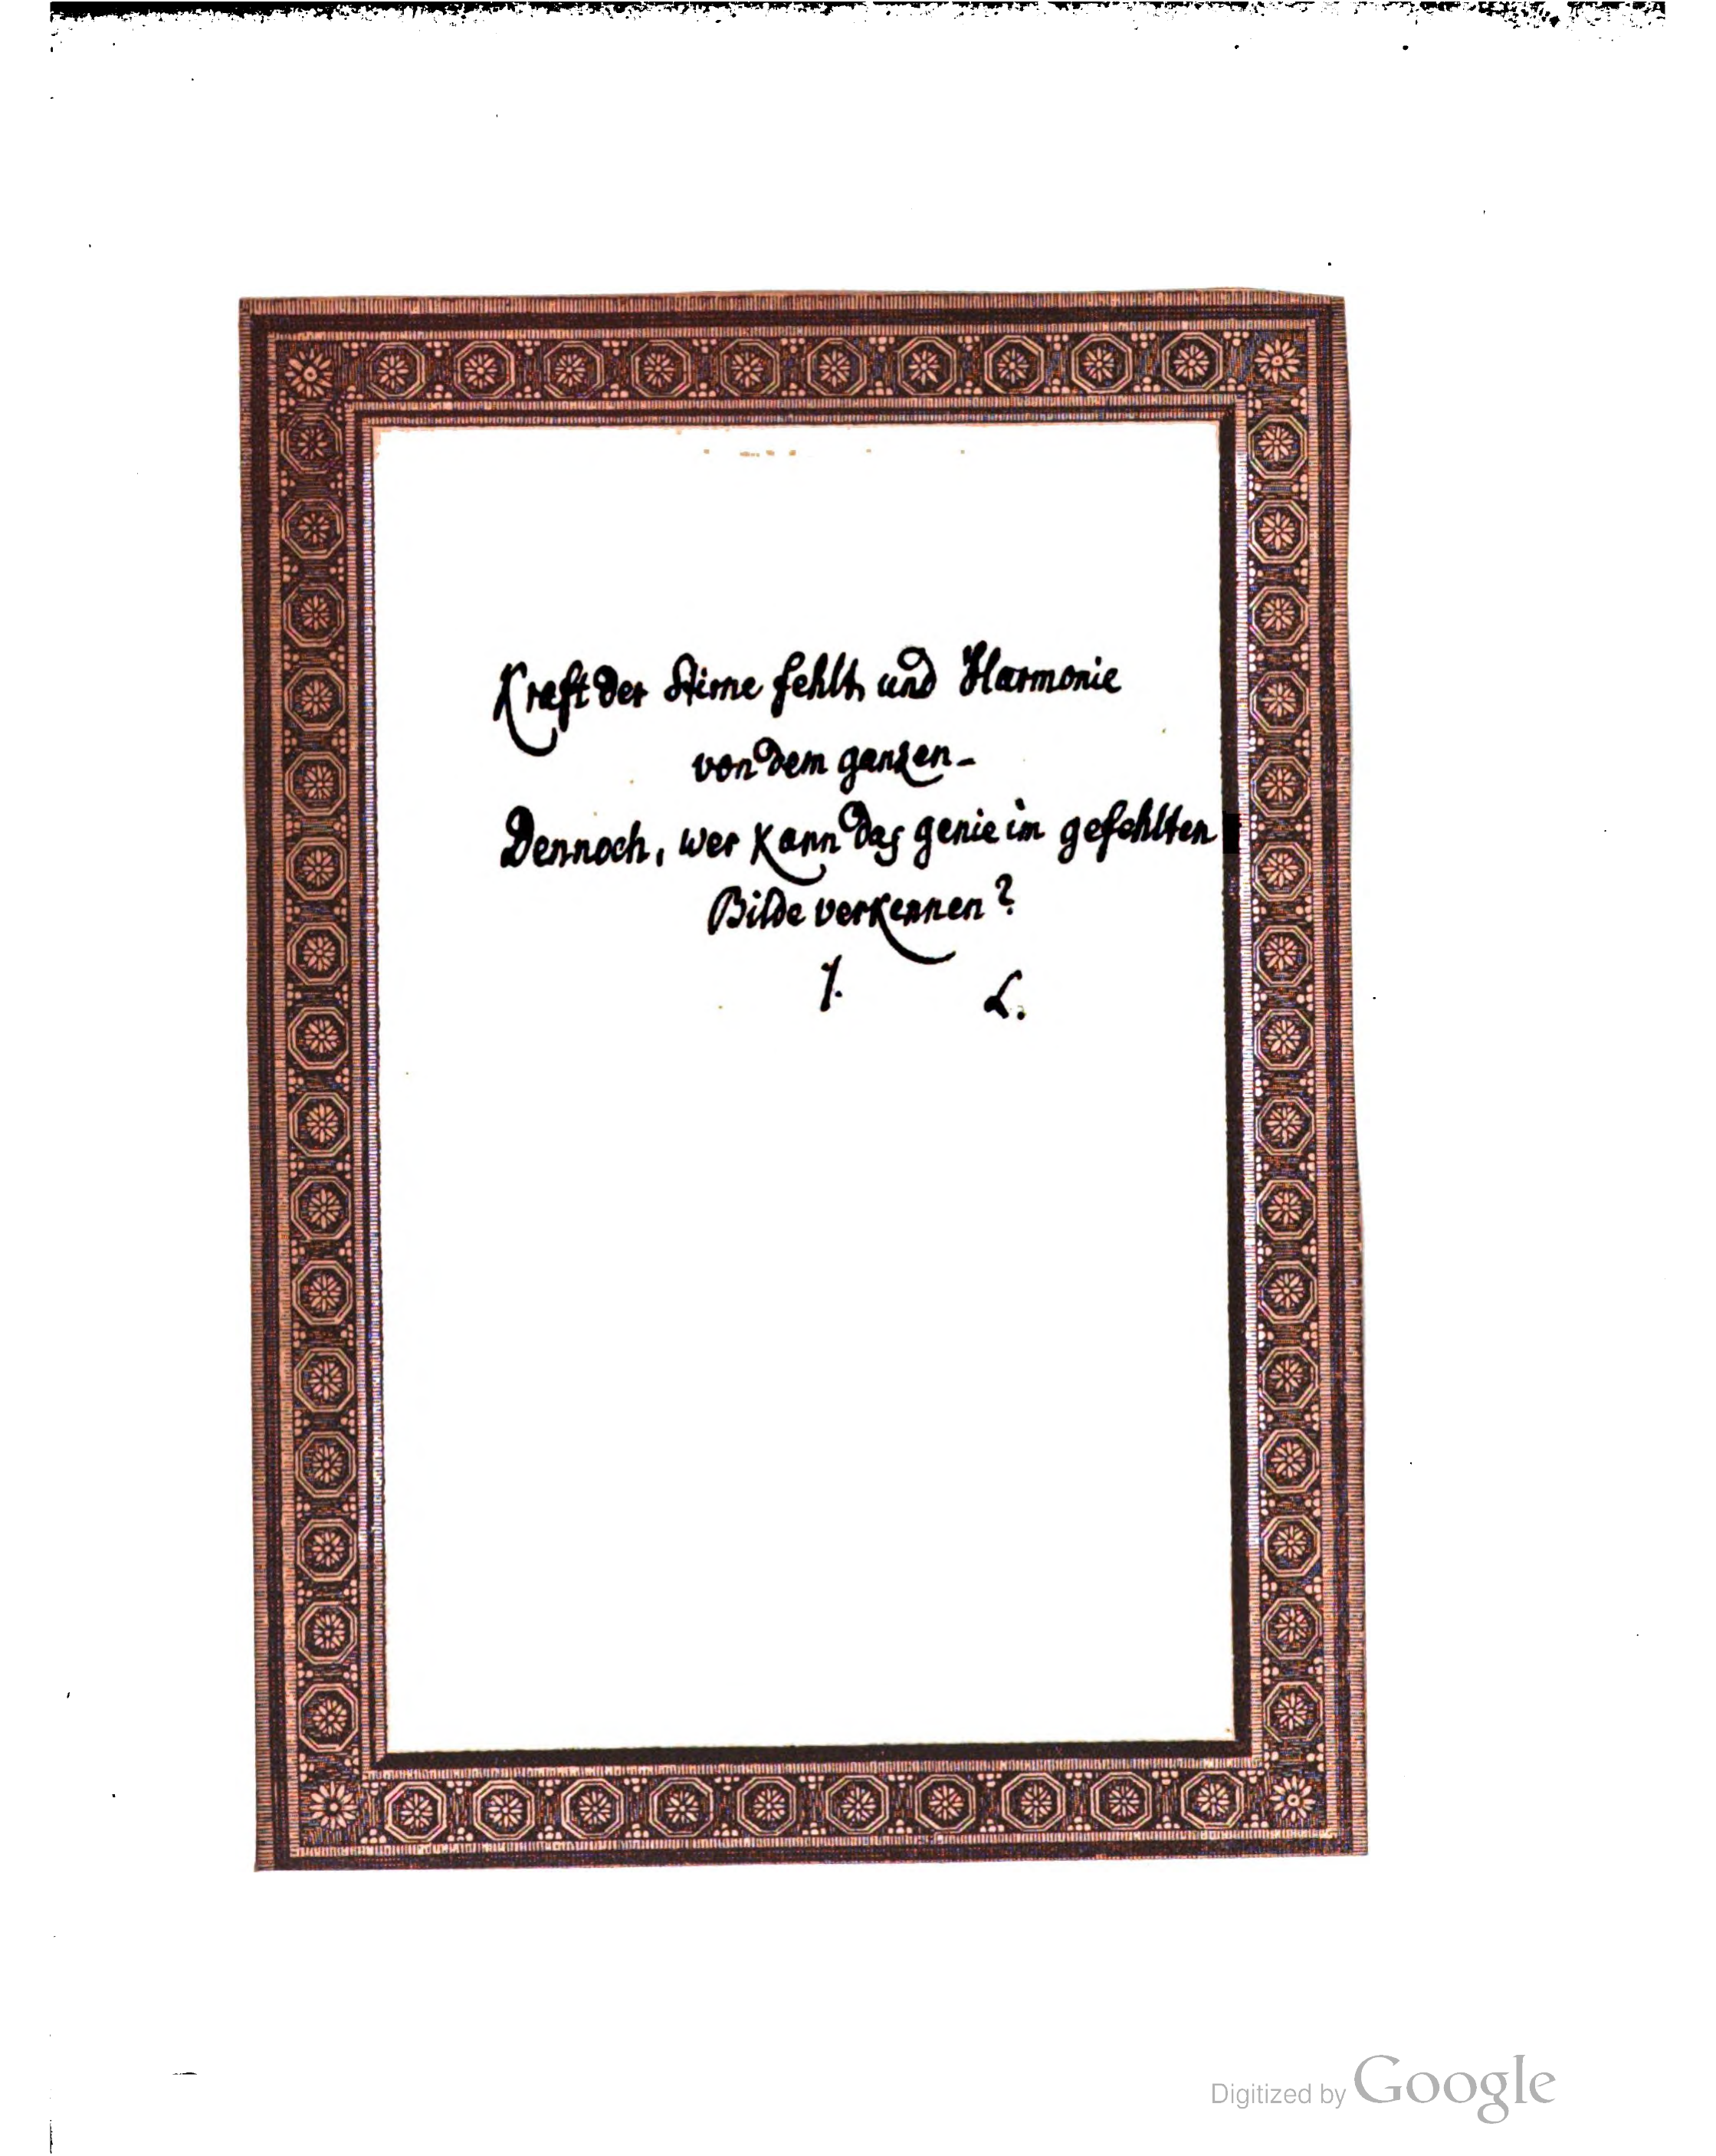 Kraft der Stirne fehlt, und Harmonie
von dem ganzen-
Dennoch, wer kann das genie im gefehlten
Bilde verkennen?
L.
Digitized by Google